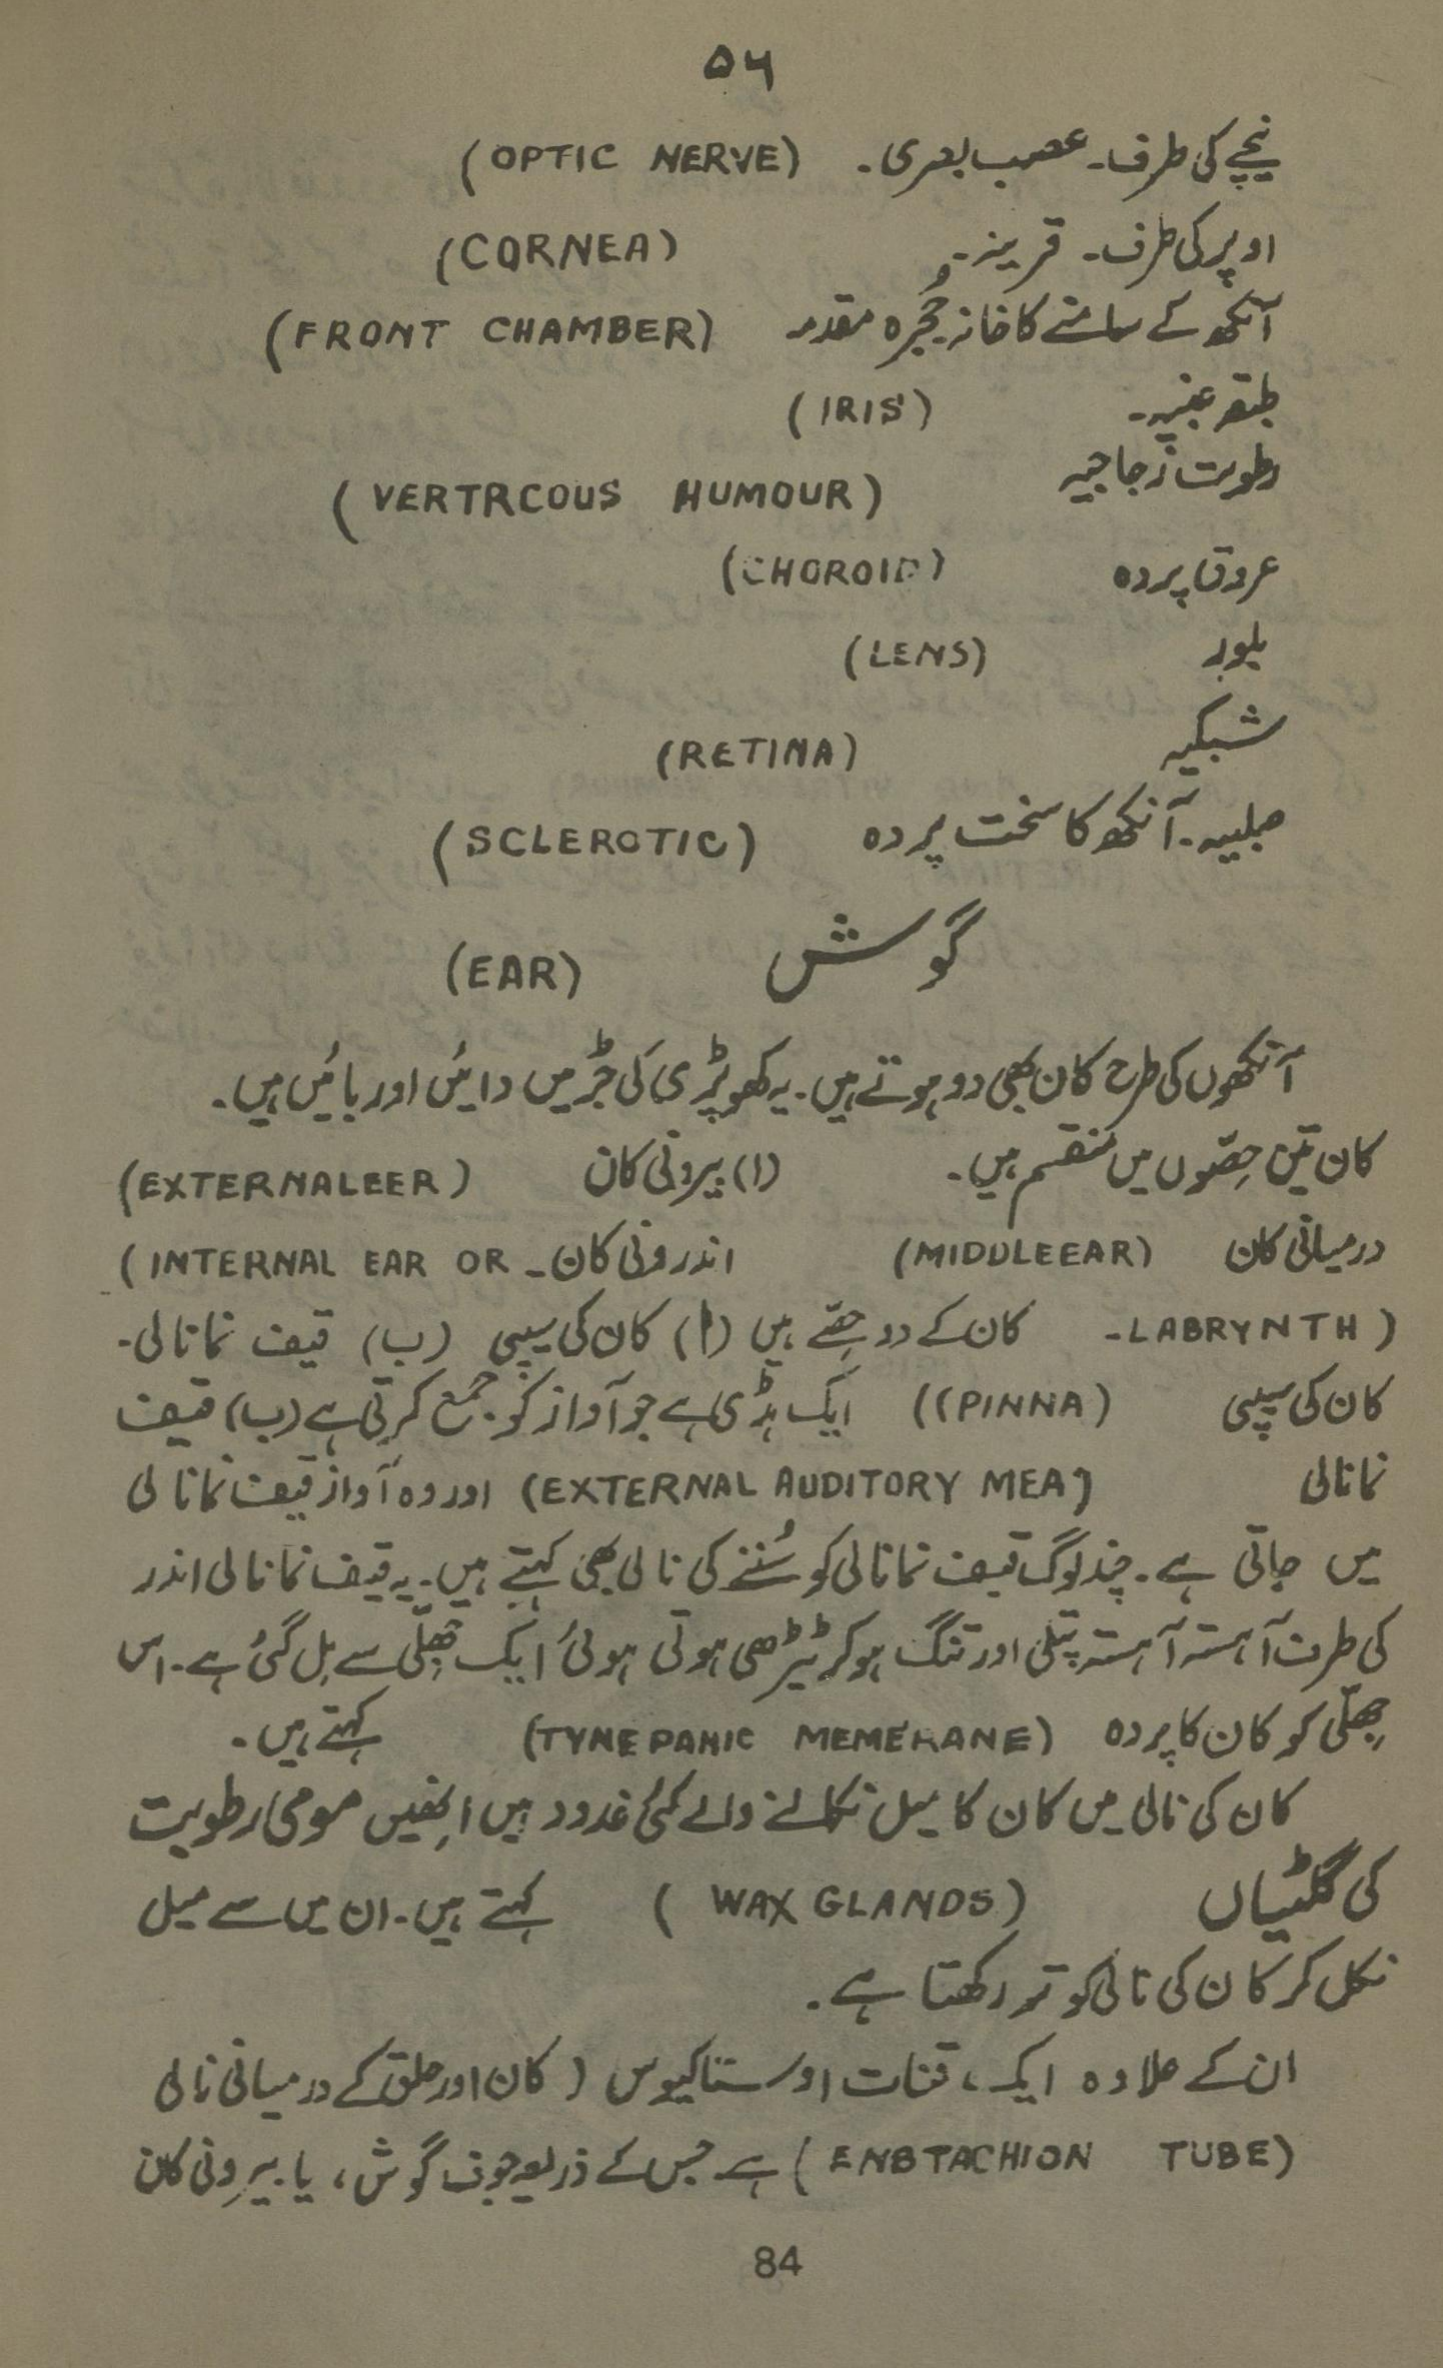 ۵۶
نیچے کی طرف۔ عصب بصری۔ (OPTIC NERVE)
اوپر کی طرف۔ قرینہ۔ (CORNEA)
آنکھ کے سامنے کا خانہ۔ حُجرہ مقدمہ (FRONT CHAMBER)
طبقہ عنبیہ۔ (IRIS)
رطوبت زجاجیہ (VERTRCOUS HUMOUR)
عروق پردہ (CHOROID)
بلور (LENS)
شبکیہ (RETINA)
صلبیہ۔ آنکھ کا سخت پردہ (SCLEROTIC)
گوش (EAR)
آنکھوں کی طرح کان بھی دو ہوتے ہیں۔ یہ کھوپڑی کی جڑ میں دائیں اور بائیں ہیں۔
کان تین حِصّوں میں منقسم ہیں۔ (۱) بیرونی کان (EXTERNALEER)
درمیانی کان (MIDDLEEAR) اندرونی کان۔ (INTERNAL EAR OR
LABRYNTH)۔ کان کے دو حِصّے ہیں (ا) کان کی سیپی (ب) قیف نما نالی۔
کان کی سیپی ((PINNA) ایک ہڈی ہے جو آواز کو جمع کرتی ہے (ب) قیف
نما نالی (EXTERNAL AUDITORY MEA) اور وہ آواز قیف نما نالی
میں جاتی ہے۔ چند لوگ قیف نما نالی کو سُننے کی نالی بھی کہتے ہیں۔ یہ قیف نما نالی اندر
کی طرف آہستہ آہستہ پتلی اور تنگ ہو کر ٹیڑھی ہوتی ہوئی ایک جھِلّی سے مِل گئی ہے۔ اس
جھِلّی کو کان کا پردہ (TYNEPANIC MEMERANE) کہتے ہیں۔
کان کی نالی میں کان کا میل نکالنے والے کئی غدود ہیں انھیں مومی رطوبت
کی گلٹیاں (WAX GLANDS) کہتے ہیں۔ ان میں سے میل
نکل کر کان کی نالی کو تر رکھتا ہے۔
ان کے علاوہ ایک، قنات اوستاکیوس (کان اور حلق کے درمیانی نالی
(ENBTACHION TUBE) ہے جس کے ذریعہ جوف گوش، یا بیرونی کان
84